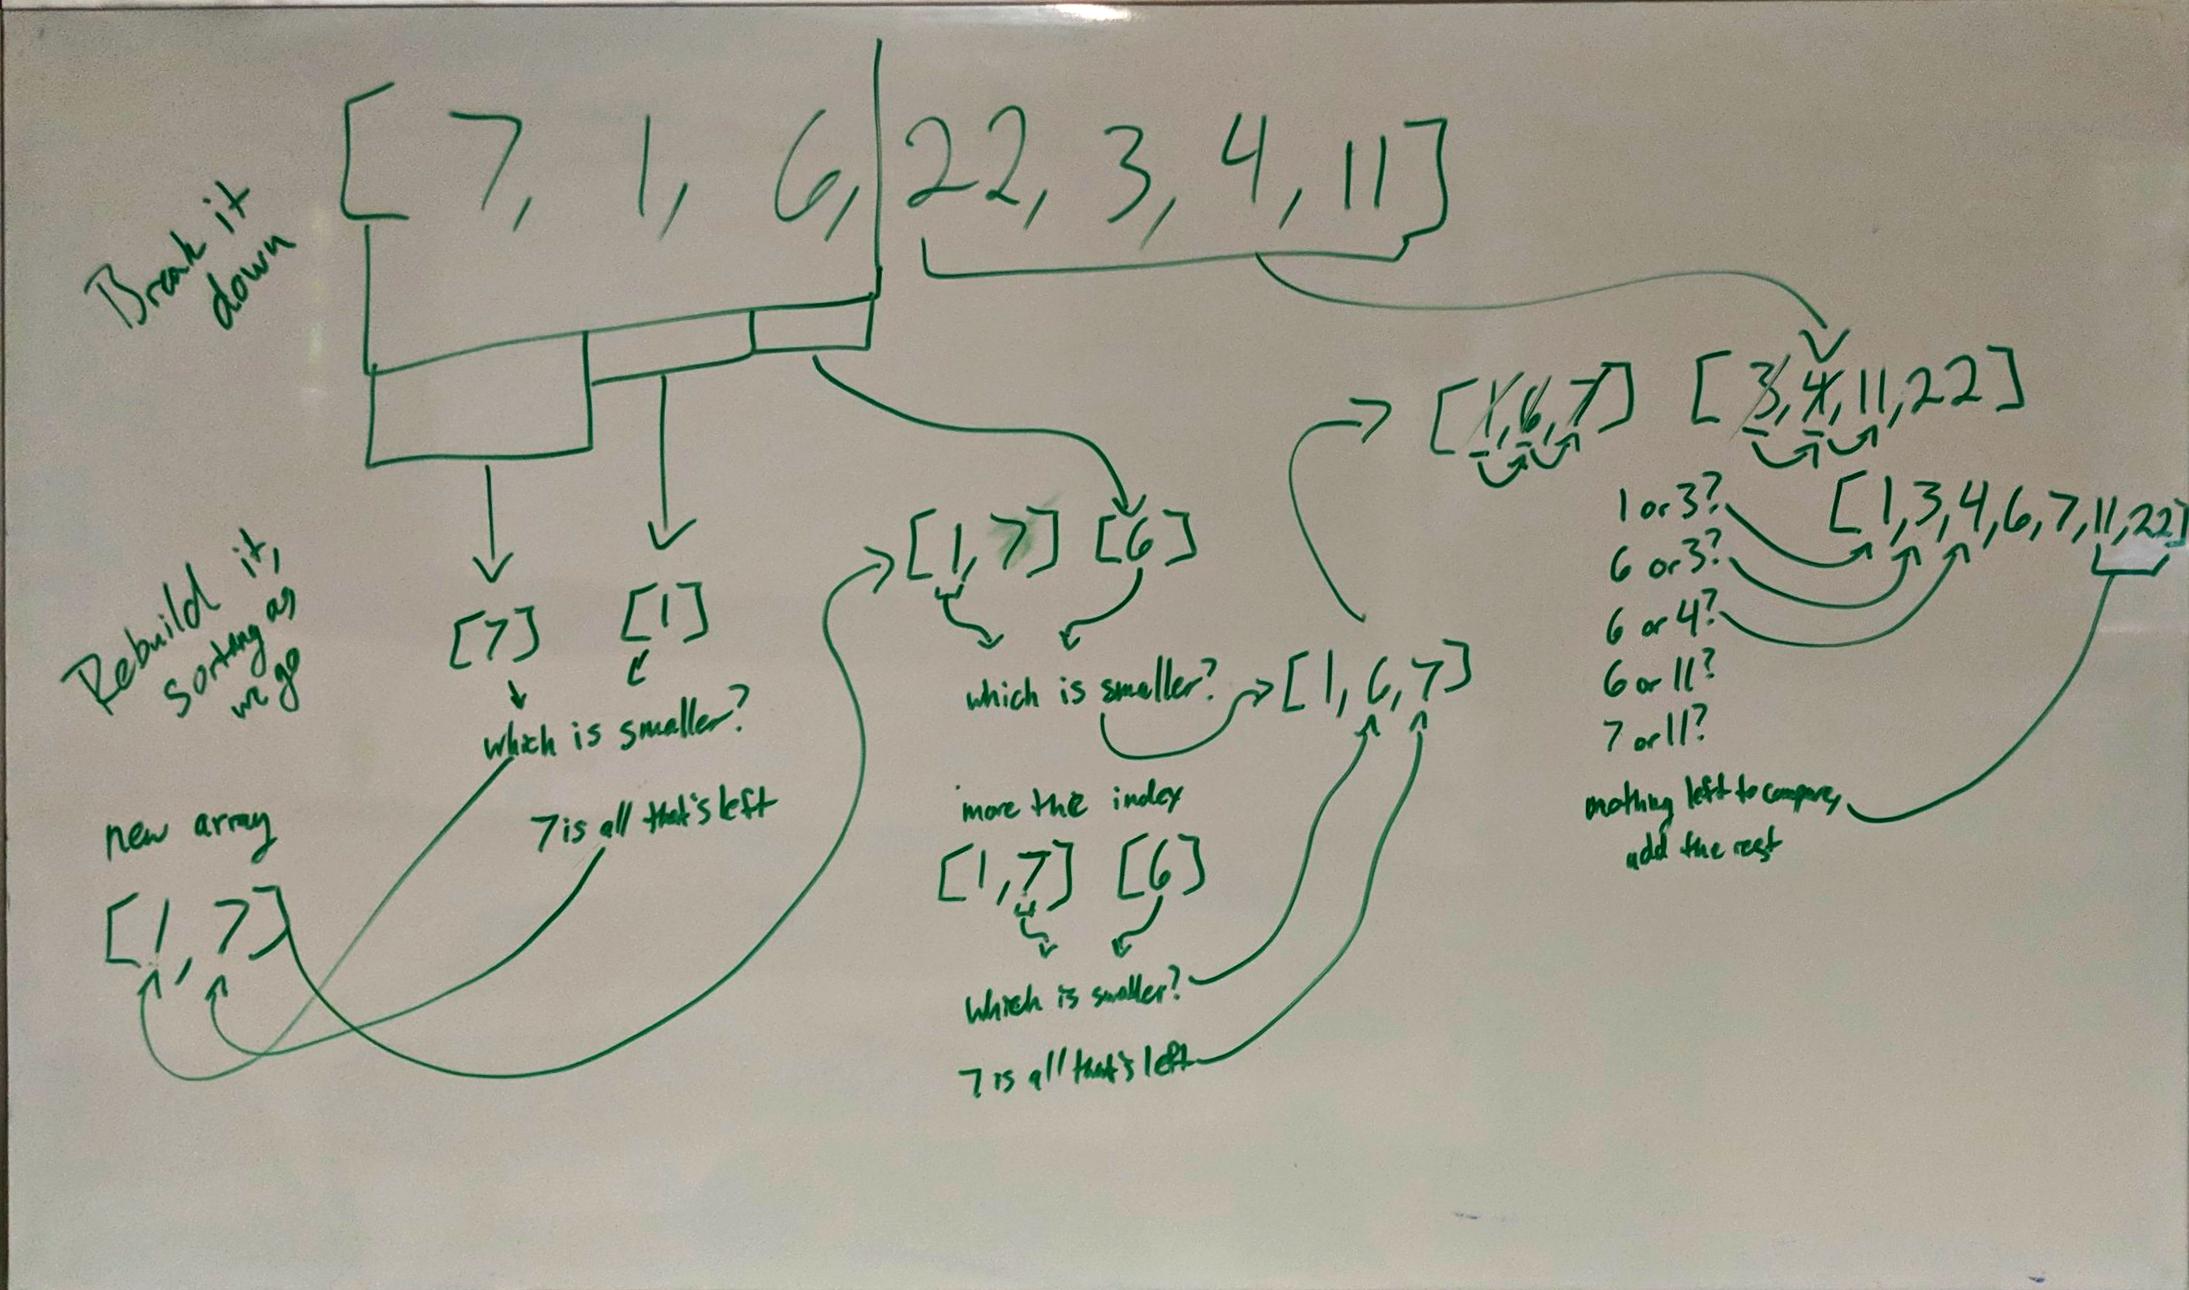 [ 7, 1, 6, 22, 3, 4, 11]
Break it
down
[1, 6, 7] [3, 4, 11, 22]
Rebuild it,
sorting as
we go
[7] [1]
which is smaller?
7 is all that's left
new array
[1, 7]
[1, 7] [6]
which is smaller?
[1, 6, 7]
move the index
[1, 7] [6]
Which is smaller?
7 is all that's left
1 or 3?
6 or 3?
6 or 4?
6 or 11?
7 or 11?
nothing left to compare,
add the rest
[1, 3, 4, 6, 7, 11, 22]